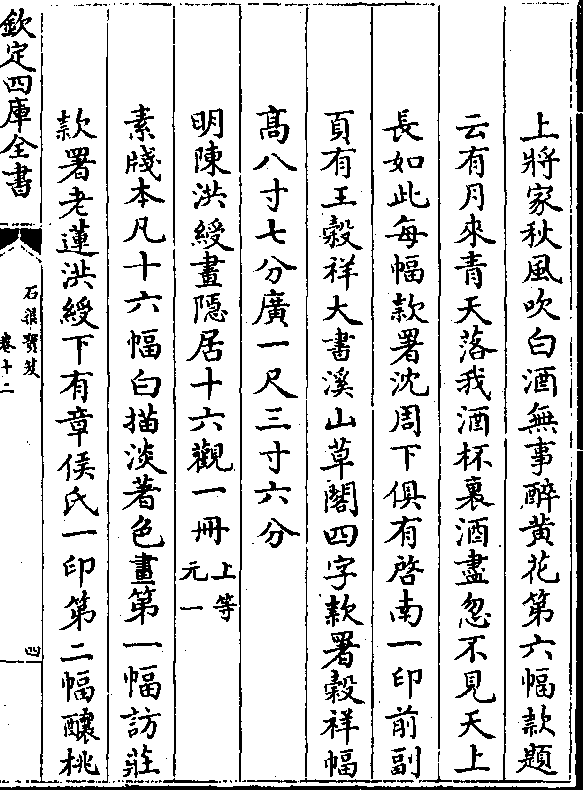 上將家秋風吹白酒無事醉黄花第六幅款題
云有月來青天落我酒杯裏酒盡忽不見天上
長如此每幅款署沈周下俱有啓南一印前副
頁有王榖祥大書溪山草閣四字款署榖祥幅
髙八寸七分廣一尺三寸六分
明陳洪綬畫隠居十六觀一冊上等元一
素牋本凡十六幅白描淡著色畫第一幅訪莊
款署老蓮洪綬下有章侯氏一印第二幅釀桃
欽定四庫全書
石渠寳笈
卷十二
四